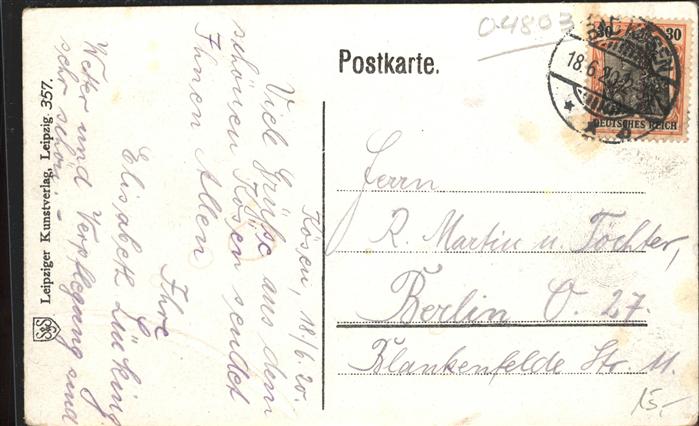 04803
Postkarte.
BAD KÖSEN
18.6.20.
30 30
DEUTSCHES REICH
Kösen, 18/6.20.
Viele Grüße aus dem
schönen Kösen sendet
Ihnen Allen
Ihre
Elisabeth Lücking
Wetter und Verpflegung sind
sehr schön. –
Herrn
R. Martin u. Tochter,
Berlin O. 27.
Blankenfelde Str. 11.
15,-
Leipziger Kunstverlag, Leipzig. 357.